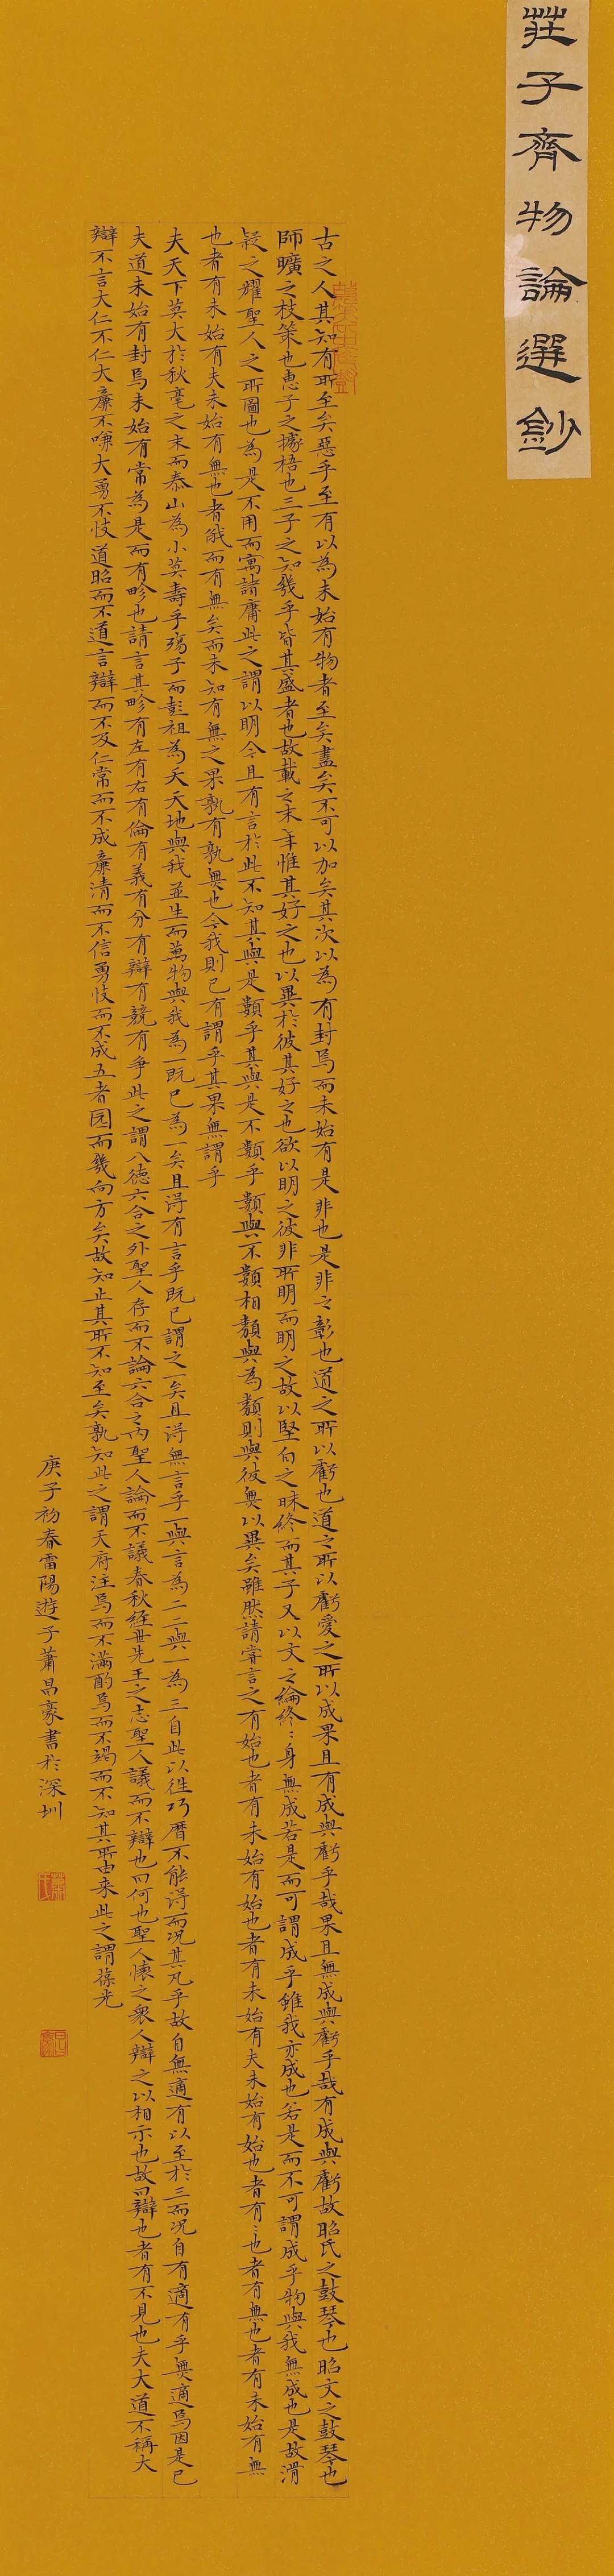 莊子齊物論選鈔
古之人其知有所至矣惡乎至有以為未始有物者至矣盡矣不可以加矣其次以為有封焉而未始有是非也是非之彰也道之所以虧也道之所以虧愛之所以成果且有成與虧乎哉果且無成與虧乎哉有成與虧故昭氏之鼓琴也昭文之鼓琴也
師曠之枝策也惠子之據梧也三子之知幾乎皆其盛者也故載之末年惟其好之也以異於彼其好之也欲以明之彼非所明而明之故以堅白之昧終而其子又以文之綸終〻身無成若是而可謂成乎雖我亦成也若是而不可謂成乎物與我無成也是故滑
疑之耀聖人之所圖也為是不用而寓諸庸此之謂以明今且有言於此不知其與是類乎其與是不類乎類與不類相類與為類則與彼無以異矣雖然請嘗言之有始也者有未始有始也者有未始有夫未始有始也者有〻也者有無也者有未始有無
也者有未始有夫未始有無也者俄而有無矣而未知有無之果孰有孰無也今我則已有謂乎其果無謂乎
夫天下莫大於秋毫之末而泰山為小莫壽乎殤子而彭祖為夭天地與我並生而萬物與我為一既已為一矣且得有言乎既已謂之一矣且得無言乎一與言為二二與一為三自此以往巧曆不能得而況其凡乎故自無適有以至於三而況自有適有乎無適焉因是已
夫道未始有封焉未始有常為是而有畛也請言其畛有左有右有倫有義有分有辯有競有爭此之謂八德六合之外聖人存而不論六合之內聖人論而不議春秋經世先王之志聖人議而不辯也曰何也聖人懷之眾人辯之以相示也故曰辯也者有不見也夫大道不稱大
辯不言大仁不仁大廉不嗛大勇不忮道昭而不道言辯而不及仁常而不成廉清而不信勇忮而不成五者园而幾向方矣故知止其所不知至矣孰知此之謂天府注焉而不滿酌焉而不竭而不知其所由來此之謂葆光
庚子初春雷陽遊子蕭昌豪書於深圳